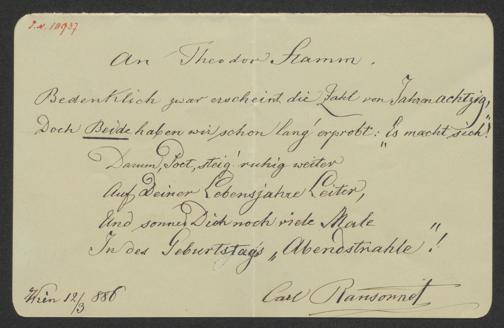 I.N. 10937
An Theodor Stamm.
Bedenklich zwar erscheint die Zahl von Jahren achtzig,
Doch Beide haben wir schon lang' erprobt: „Es macht sich"!
Darum, Poet, steig' ruhig weiter
Auf Deiner Lebensjahre Leiter,
Und sonne Dich noch viele Male
In des Geburtstags „Abendstrahle"!
Wien 12/3 886
Carl Ransonnet